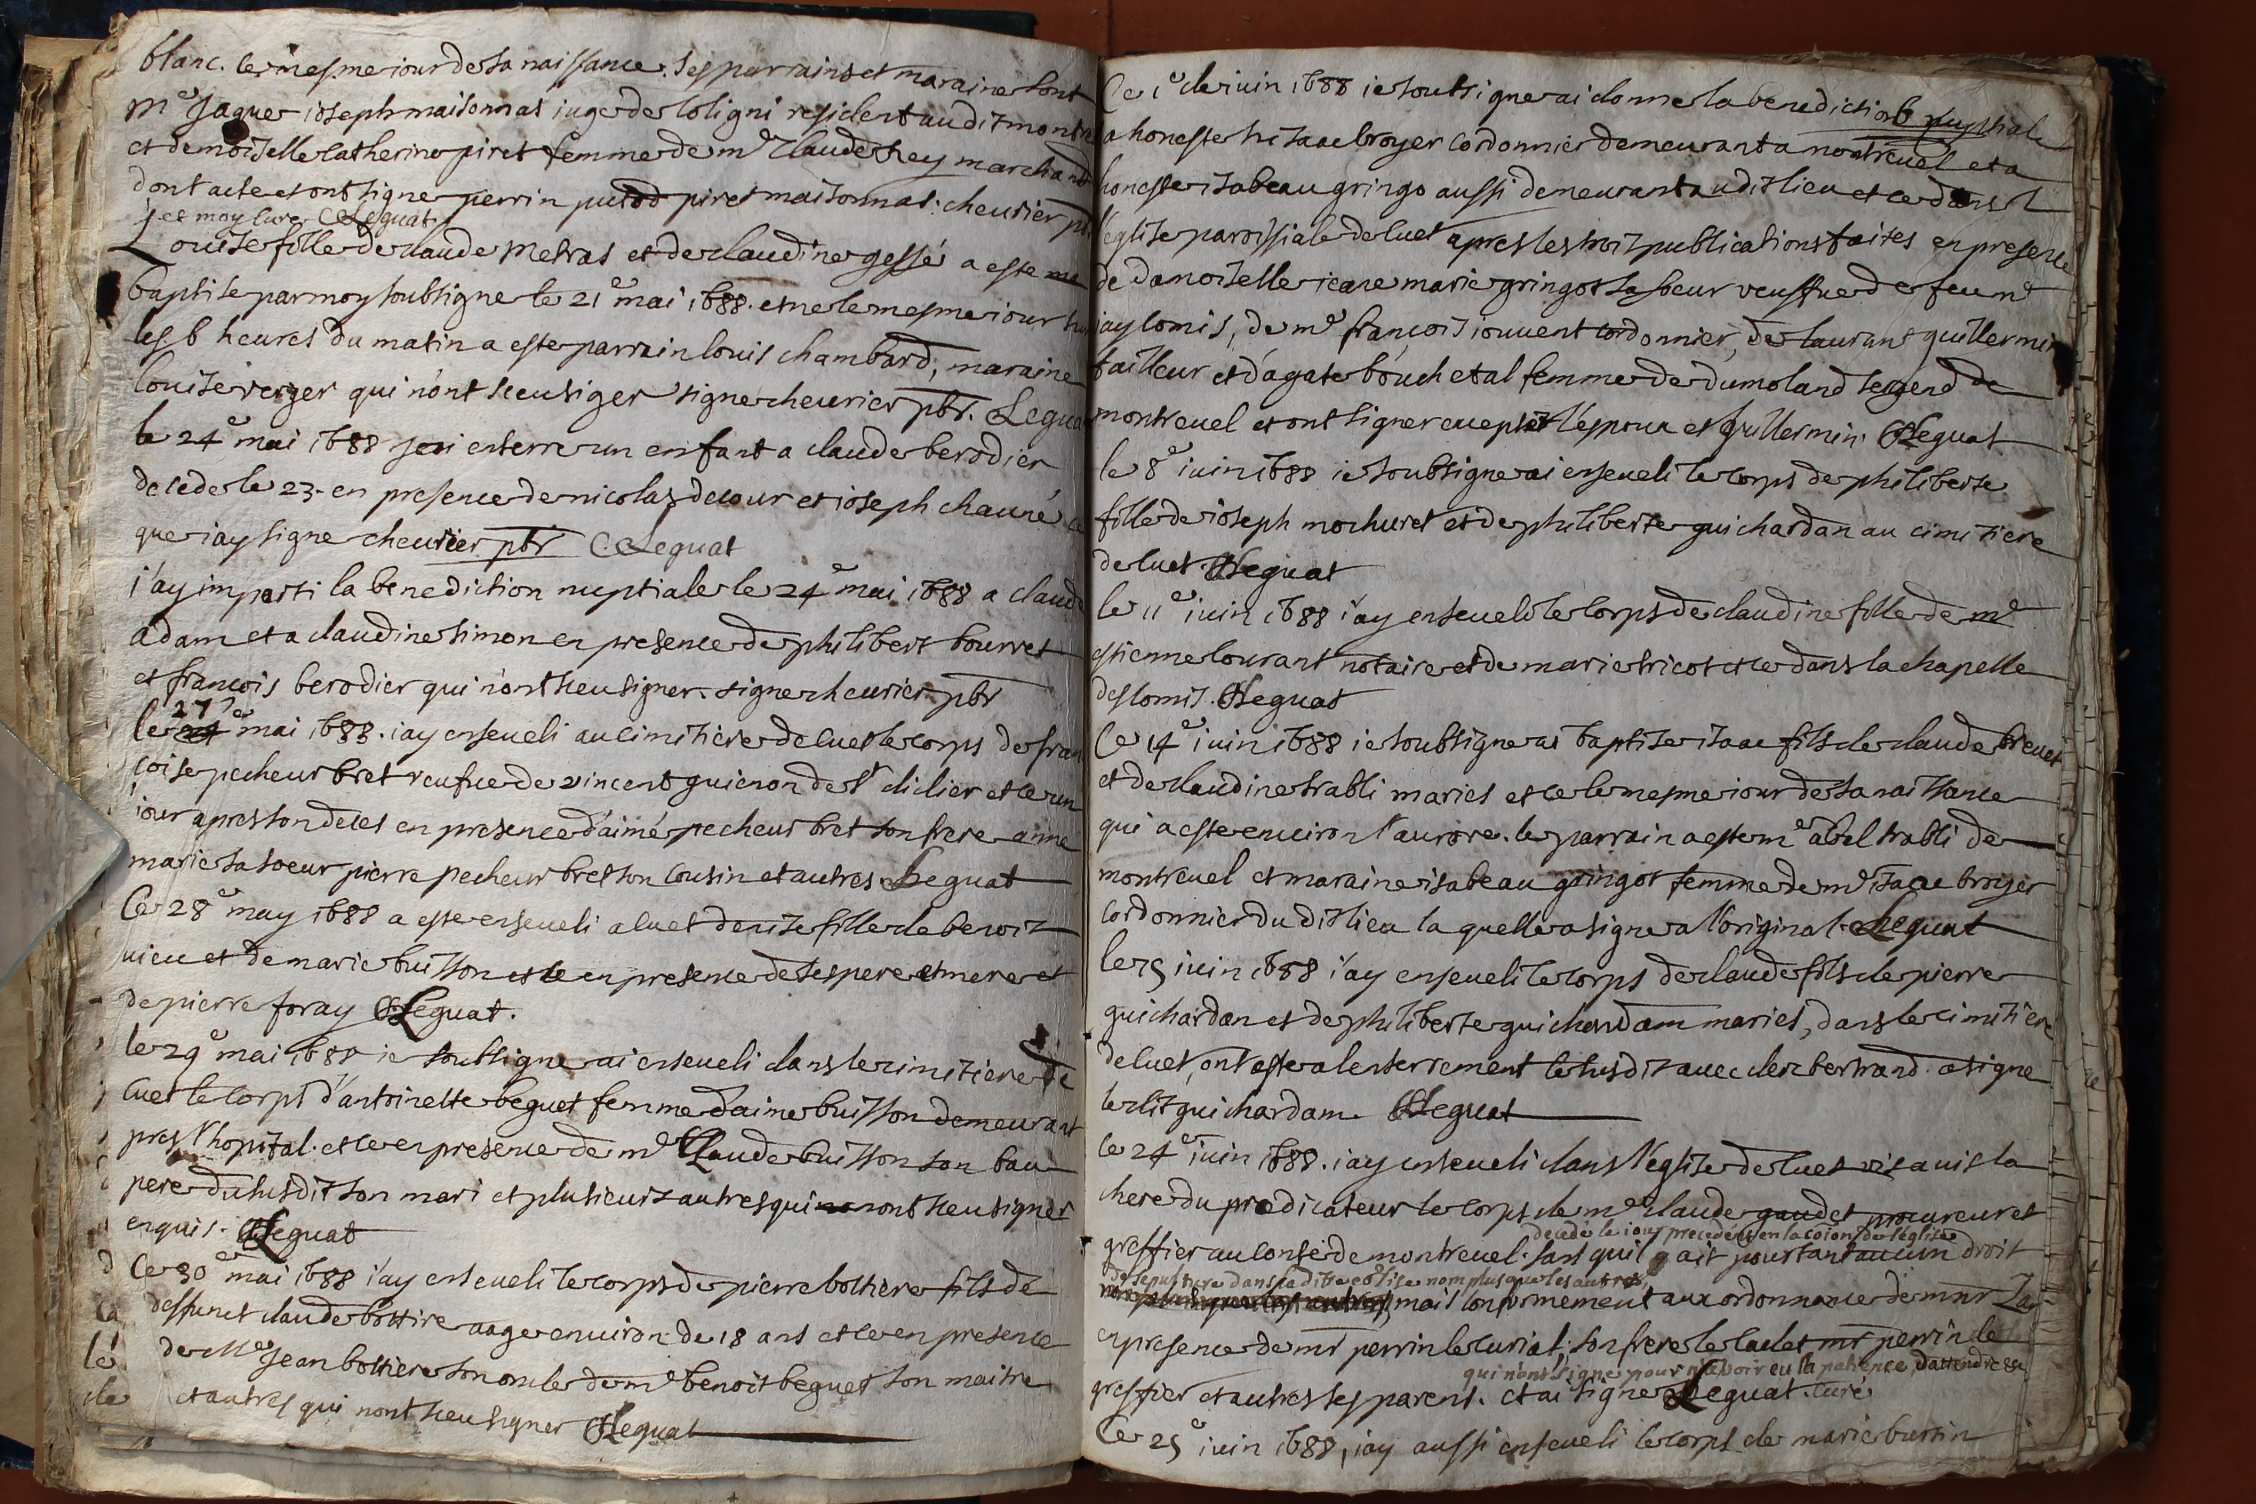 blanc. le mesme iour de sa naissance. ses parrains et maraine sont
Me Jaque ioseph maisonnas iuge de coligni resident audit montre
et demoiselle catherine piret femme de mr claude rey marchand
dont acte et ont signe perrin putod piret maisonnas. cheurier pbr.
et moy cure CLeguat
Louise fille de claude Metras et de claudine gessé a este
baptise par moy soubsigne le 21e mai 1688. et ne le mesme iour
les 6 heures du matin a este parrain louis chambard, maraine
louise verger qui n'ont sceu siger signe cheurier pbr. Leguat
le 24e mai 1688 jeai enterre un enfant a claude berodier
decede le 23. en presence de nicolas decour et ioseph chauné ce
que iay signe cheurier pbr CLeguat
i'ay imparti la benediction nuptiale le 24e mai 1688 a claude
adam et a claudine simon en presence de philibert bourret
et francois berodier qui n'ont sceu signer. signe cheurier pbr
27
le 24e mai 1688. iay enseueli au cimitiere de cuet le corps de fran
coise pecheur bret veufue de vincent guienon de st didier et ce un
iour apres son deces en presence d'aimé pecheur bret son frere anne
marie sa soeur pierre pecheur bret son cousin et autres. Leguat
Ce 28e may 1688 a este enseueli a cuet denise fille de benoit
uieu et de marie buisson et ce en presence de ses pere et mere et
de pierre foray CLeguat.
le 29e mai 1688 ie soubsigne ai enseueli dans le cimitiere de
cuet le corps d'antoinette beguet femme d'aime buisson demeurant
pres l'hopital. et ce en presence de me Claude buisson son bau
pere du susdit son mari et plusieurs autres qui ne n'ont sceu signer
enquis. CLeguat
Ce 30e mai 1688 i'ay enseueli le corps de pierre bottiere fils de
deffunct claude bottire aage enuiron de 18 ans et ce en presence
de Me Jean bottiere son oncle de me benoit beguet son maitre
et autres qui n'ont sceu signer CLeguat
Ce 1e de iuin 1688 ie soubsigne ai donne la benediction nuptiale
a honeste hi isaac broyer cordonnier demeurant a montreuel et a
honeste isabeau gringo aussi demeurant audit lieu et ce dans l
l'eglise paroissiale de cuet apres les trois publications faites en presence
de damoiselle ieane marie gringot sa soeur veuffue de feu me
iay comis, de me françois iouuent cordonnier, de laurant guillermin
tailleur et d'agate bouchetal femme de dumoland sergend de
montreuel et ont signer excepter l'epoux et guillermin. CLeguat
le 8e iuin 1688 ie soubsigne ai enseueli le corps de philiberte
fille de ioseph mochuret et de philiberte guichardan au cimitiere
de cuet. CLeguat
le 11e iuin 1688 i'ay enseueli le corps de claudine fille de me
estienne courant notaire et de marie tricot et ce dans la chapelle
des comis. CLeguat
Ce 14e iuin 1688 ie soubsigne ai baptise isaac fils de claude breuet
et de claudine trabli maries et ce le mesme iour de sa naissance
qui a este enuiron l'aurore. le parrain a este me abel trabli de
montreuel et maraine isabeau gringot femme de me isaac broyer
cordonnier du dit lieu la quelle a signe a l'original. CLeguat
le 15 iuin 1688 i'ay enseueli le corps de claude fils de pierre
guichardan et de philiberte guichardam maries, dans le cimitiere
de cuet, ont este a lenterrement le susdit auec clere bertrand. a signe
ledit guichardam. CLeguat
le 24e iuin 1688. i'ay enseueli dans l'eglise de cuet vis a uis la
chere du predicateur le corps de me claude gaudet procureur et
decede le iour precedent en la coion de l'eglise
greffier au conse de montreuel. sans quil y ait pourtant aucun droit
de sepulture dans ladite eglise nom plus que les autres
mais conformement aux ordonnance de mnr
en presence de mr perrin le curial, son frere le cadet mr perrin le
qui n'ont signe pour n'avoir eu la patience d'attendre
greffier et autres ses parens. et ai signe CLeguat curé
Ce 25e iuin 1688, iay aussi enseueli le corps de marie burtin